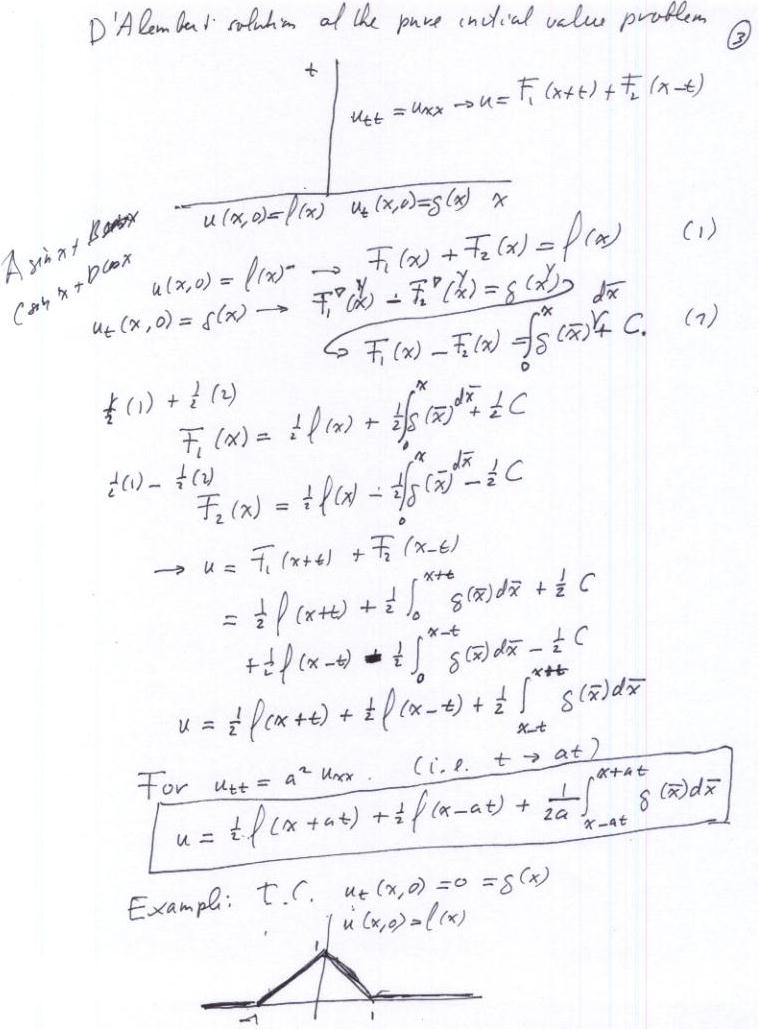 D'Alembert solution of the pure initial value problem
③
t
u_tt = u_xx → u = F₁(x+t) + F₂(x-t)
u(x,0)=f(x) u_t(x,0)=g(x) x
A sin x + B cos x
C sin x + D cos x
u(x,0) = f(x) → F₁(x) + F₂(x) = f(x) (1)
u_t(x,0) = g(x) → F₁'(x) - F₂'(x) = g(x)
→ F₁(x) - F₂(x) = ∫₀ˣ g(x̄) dx̄ + C. (2)
½(1) + ½(2)
F₁(x) = ½ f(x) + ½ ∫₀ˣ g(x̄) dx̄ + ½ C
½(1) - ½(2)
F₂(x) = ½ f(x) - ½ ∫₀ˣ g(x̄) dx̄ - ½ C
→ u = F₁(x+t) + F₂(x-t)
= ½ f(x+t) + ½ ∫₀^{x+t} g(x̄) dx̄ + ½ C
+ ½ f(x-t) - ½ ∫₀^{x-t} g(x̄) dx̄ - ½ C
u = ½ f(x+t) + ½ f(x-t) + ½ ∫_{x-t}^{x+t} g(x̄) dx̄
For u_tt = a² u_xx. (i.e. t → at)
u = ½ f(x+at) + ½ f(x-at) + 1/2a ∫_{x-at}^{x+at} g(x̄) dx̄
Example: I.C. u_t(x,0) = 0 = g(x)
u(x,0) = f(x)
1
-1 1